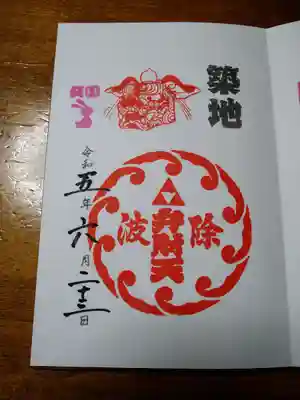 築地
波除
弁財天
令和
五年
六月
二十三日